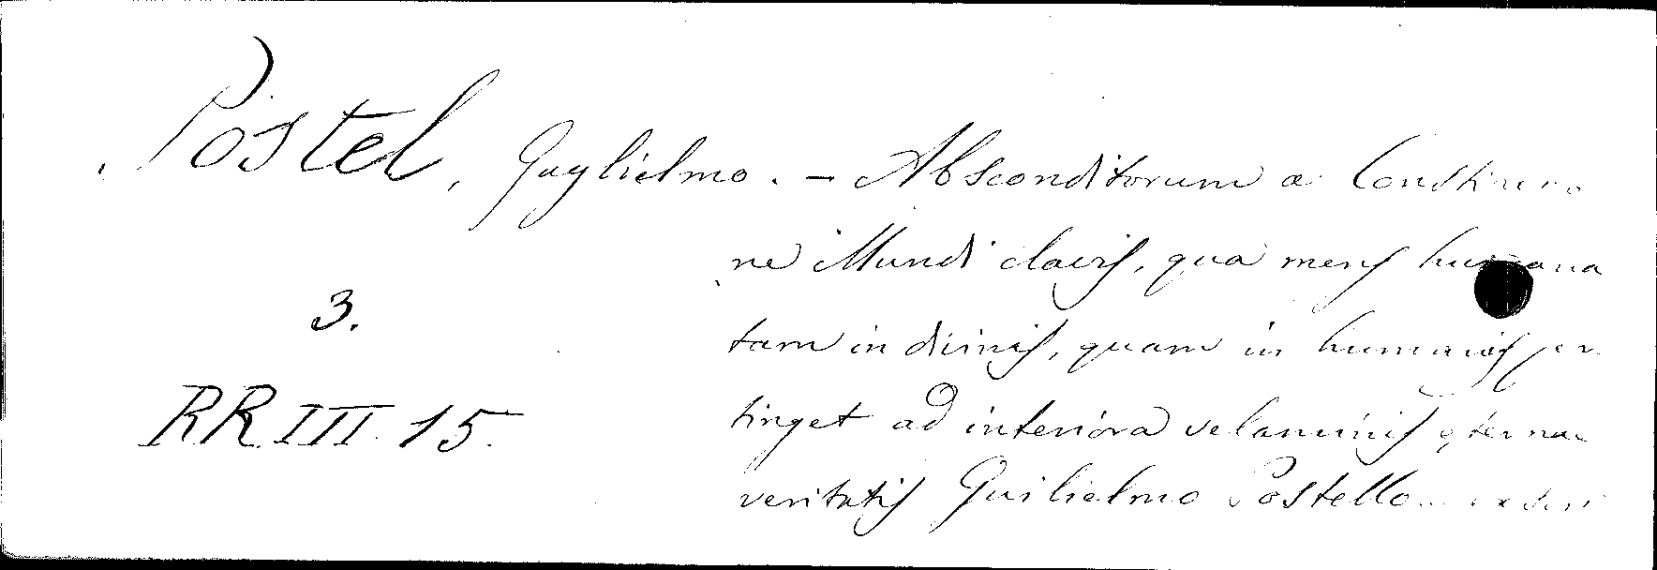 Postel, Guglielmo. — Absconditorum a Constitutio
ne Mundi clavis, qua mens humana
tam in divinis, quam in humanis per
3.
tinget ad interiora velaminis eternae
RR III 15.
veritatis Guilielmo Postello